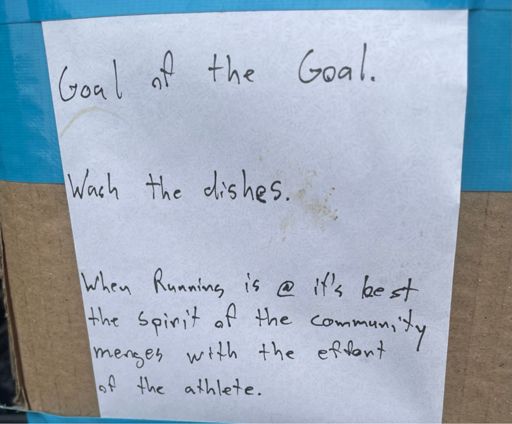 Goal of the Goal.
Wash the dishes.
When Running is @ it's best
the spirit of the community
merges with the effort
of the athlete.